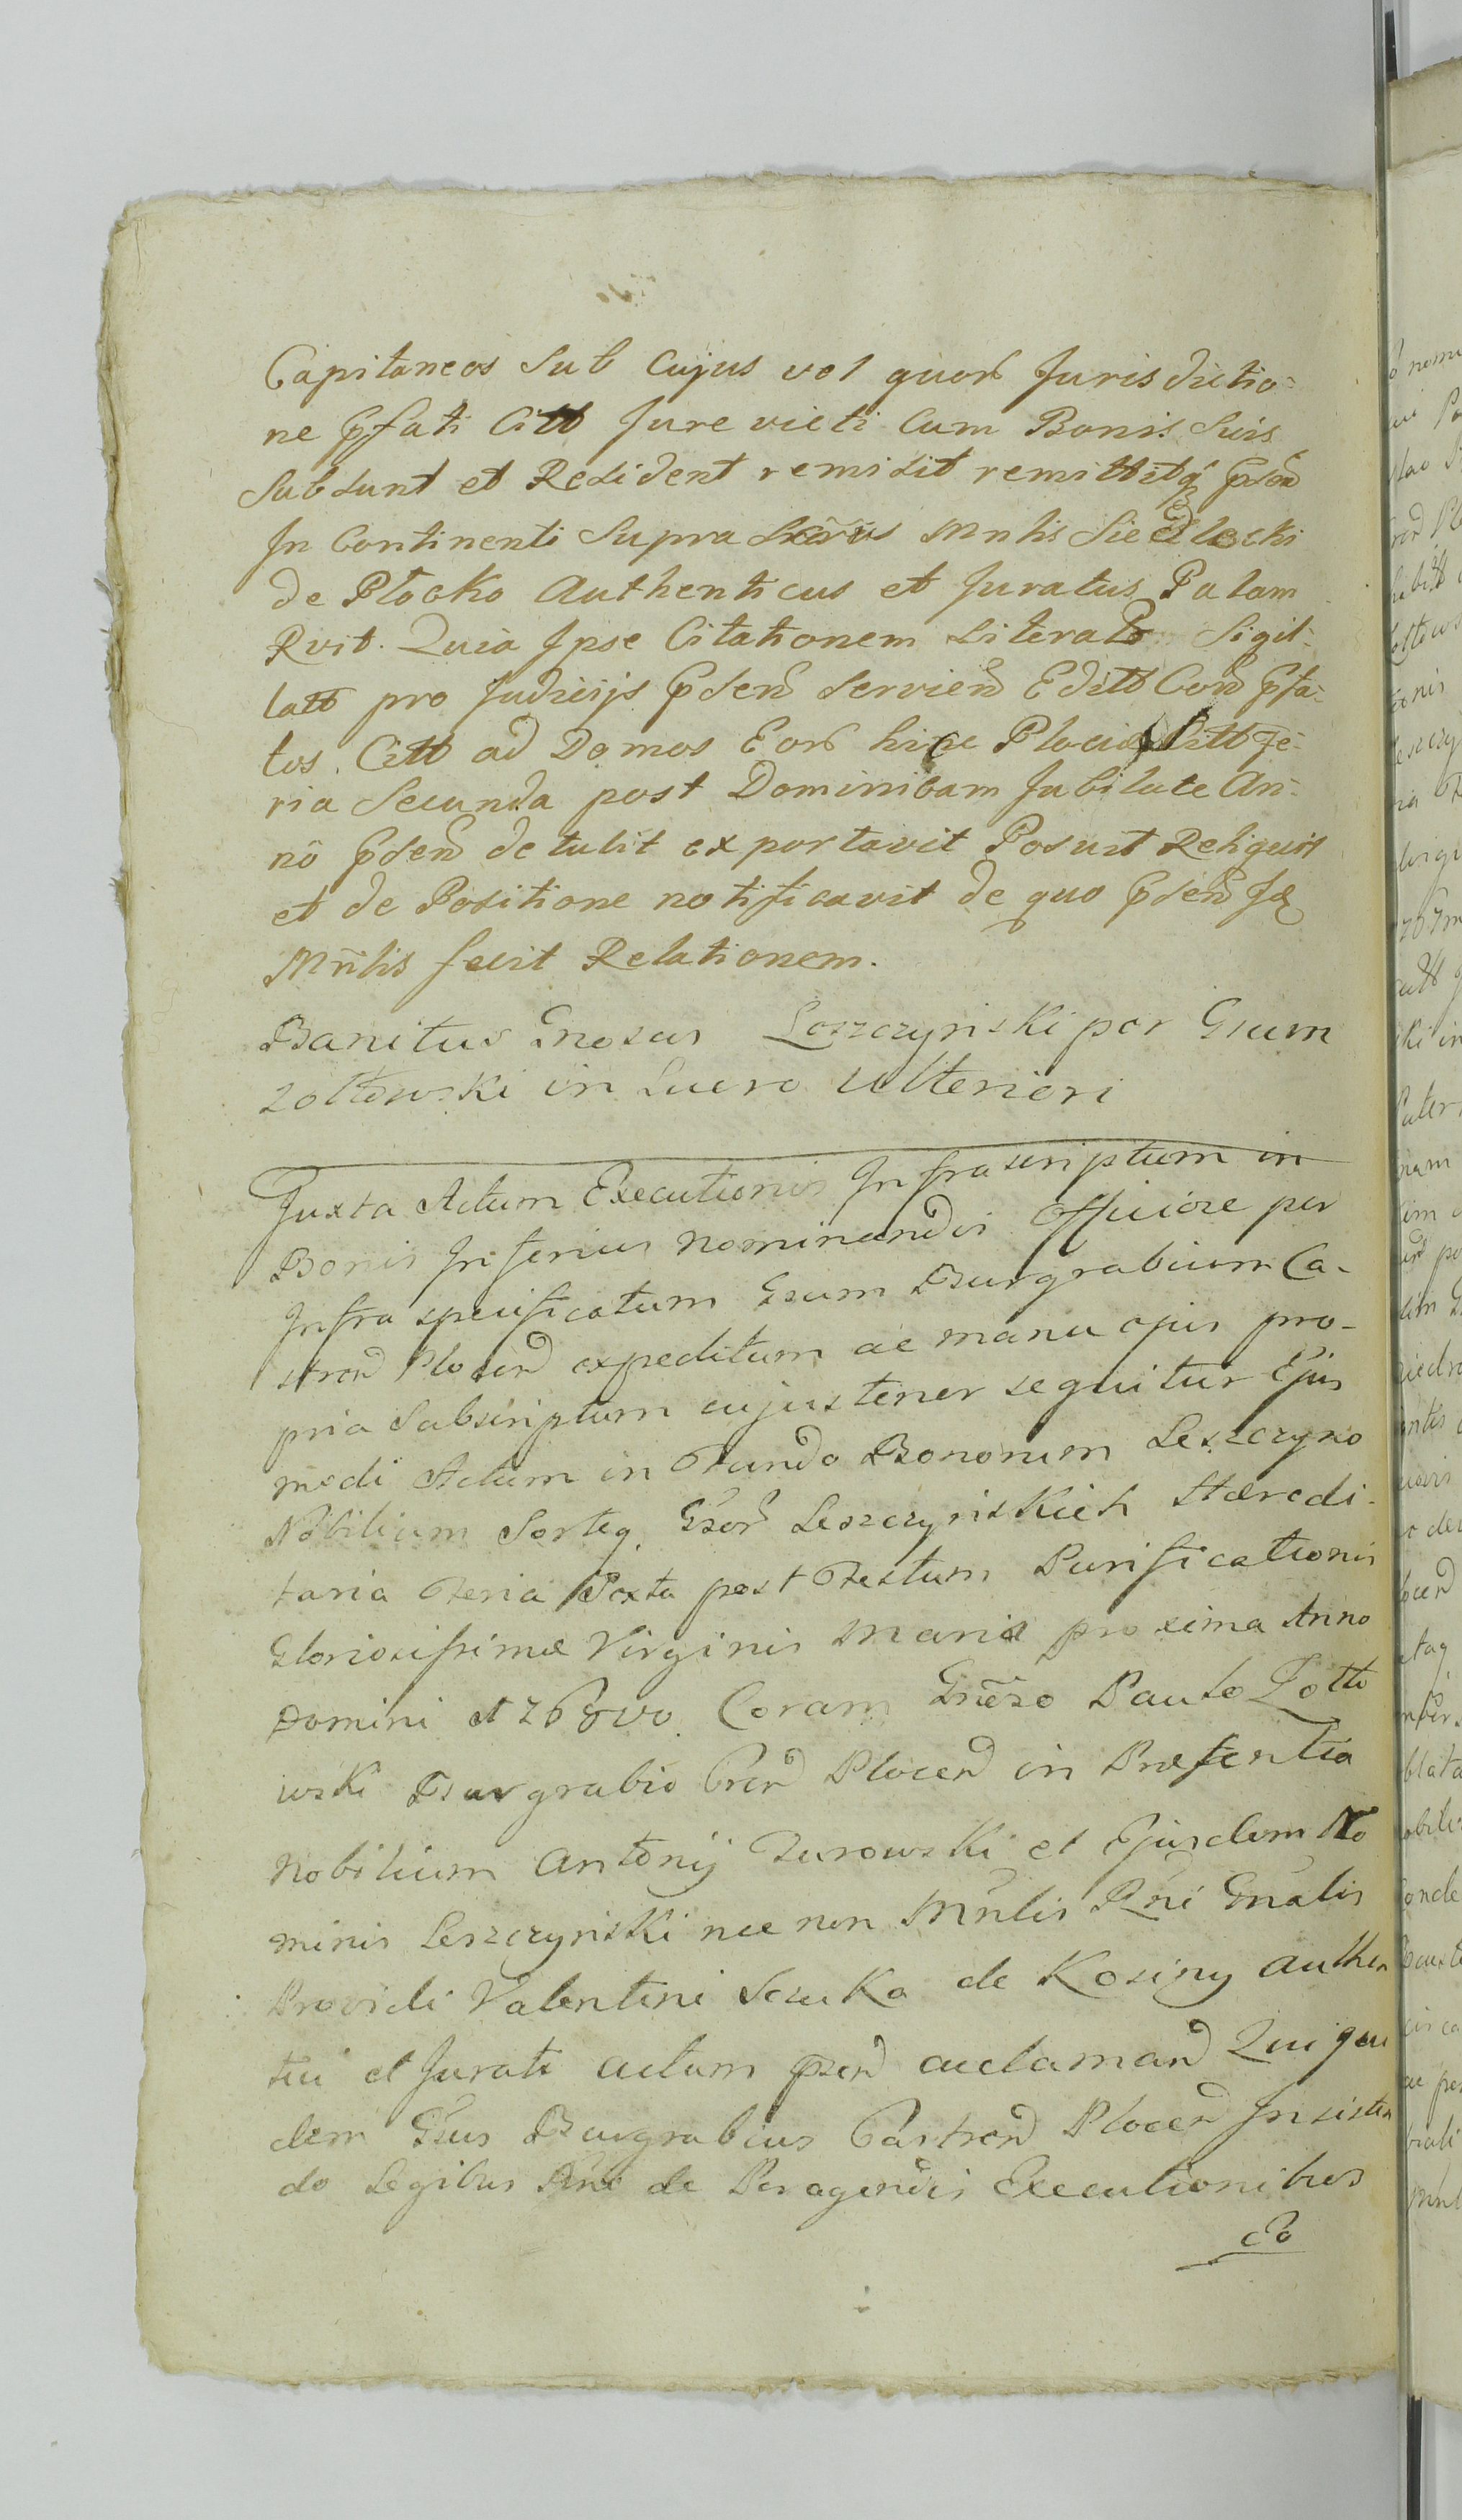 Capitaneos Sub Cujus vel quorū Jurisdictio=
ne Pfati Citt Jure victi Cum Bonis Suis
Subsunt et Resident remisit remittitq Psens
In Continenti Supra Mnlis Siedlecki
de Plocko Authenticus et Juratus Palam
Rvit. Quia Ipse Citationem Literalb Sigil=
latt pro Judicijs Psend Serviend Editt Cond Pfa=
tos. Citt ad Domos Eorū hicce Plociæ Sitt Fe=
ria Secunda post Dominicam Jubilate An=
nō Psend detulit exportavit Posuit Reliquit
et de Positione notificavit de quo Psend Jd
Mnlis fecit Relationem.
Banitus Gnosus Leszczynski per Gsum
Zołtowski in Lucro Ulteriori
Juxta Actum Executionis Infrascriptum in
Bonis Inferius nominandis Officiose per
Infra specificatum Gsum Burgrabium Ca-
stren Plocen expeditum ac manu ejus pro-
pria Subscriptum cujus tenor sequitur Ejus
modi Actum in Fundo Bonorum Leszczyno
Nobilium Sorteq Gsor Leszczynskich Hæredi-
taria Feria Sexta post Festum Purificationis
Gloriosissimæ Virginis Mariæ proxima Anno
Domini 1768vo Coram Gnoso Paulo Zołto
wski Burgrabio Cren Plocen in Præsentia
Nobilium Antonij Turowski et Ejusdem No
minis Leszczynski nec non Mnlis Rni Gnalis
Providi Valentini Szuka de Kosiny authen
tici et Jurati actum psen acclaman Qui qui
dem Gsus Burgrabius Castren Plocen Insisten
do Legibus Rni de Peragendis Executionibus